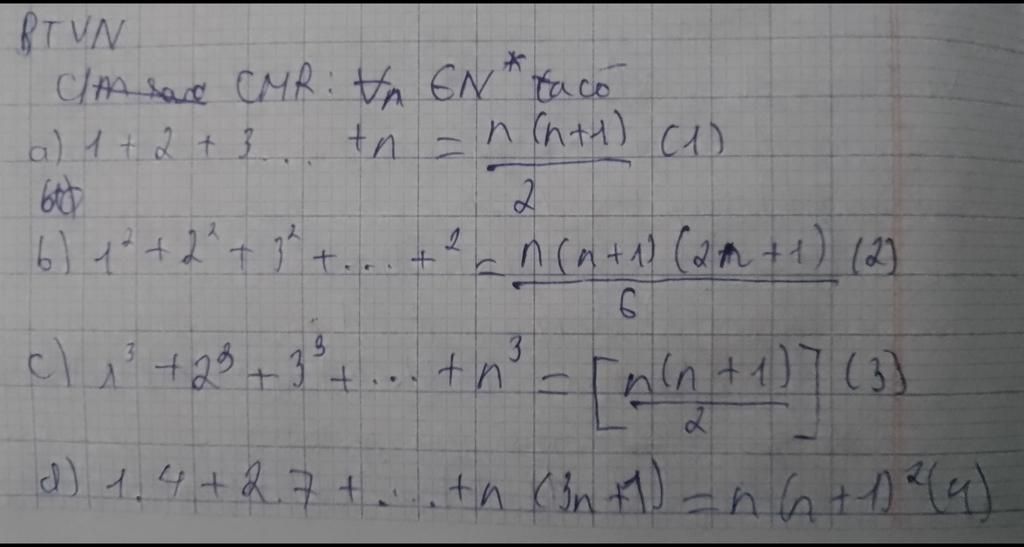 BTVN
CMR: ∀n ∈ N* ta có
a) 1 + 2 + 3 ... + n = n(n+1)/2 (1)
b) 1² + 2² + 3² + .... + ² = n(n+1)(2n+1)/6 (2)
c) 1³ + 2³ + 3³ + ... + n³ = [n(n+1)/2] (3)
d) 1.4 + 2.7 + .... + n (3n+1) = n(n+1)² (4)